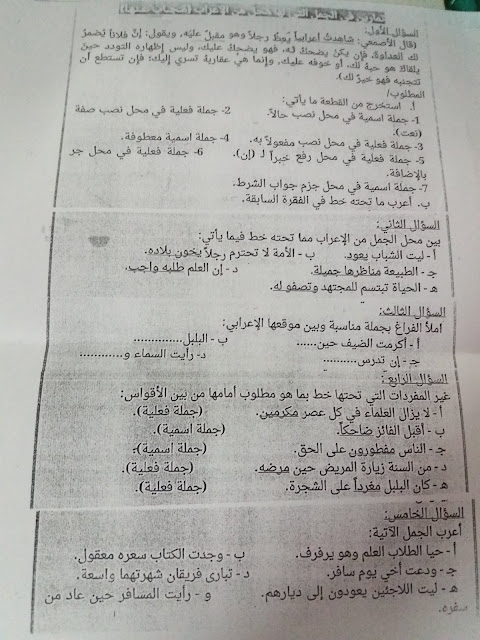 تمارين في الجمل التي لها محل من الإعراب
السؤال الأول:
(قال الأصمعي: شاهدتُ أعرابياً يَعظُ رجلاً وهو مقبلٌ عليه، ويقول: إنَّ فلاناً يُضمرُ
لك العداوةَ، فإن يكنْ يضحكُ له، فهو يضحكُ عليك، وليس إظهاره التودد حين
يلقاكَ هو حبهُ لك، أو خوفه عليك، وإنما هي عقاربهُ تسري إليك؛ فإن تستطع أن
تتجنبه فهو خيرٌ لك).
المطلوب/
أ. استخرج من القطعة ما يأتي:
1- جملة اسمية في محل نصب حالاً. 2- جملة فعلية في محل نصب صفة
(نعت).
3- جملة فعلية في محل نصب مفعولاً به. 4- جملة اسمية معطوفة.
5- جملة فعلية في محل رفع خبراً لـ (إن). 6- جملة فعلية في محل جر
بالإضافة.
7- جملة اسمية في محل جزم جواب الشرط.
ب. أعرب ما تحته خط في الفقرة السابقة.
السؤال الثاني:
بين محل الجمل من الإعراب مما تحته خط فيما يأتي:
أ - ليت الشباب يعود. ب - الأمة لا تحترم رجلاً يخون بلاده.
جـ - الطبيعة مناظرها جميلة. د - إن العلم طلبه واجب.
هـ - الحياة تبتسم للمجتهد وتصفو له.
السؤال الثالث:
املأ الفراغ بجملة مناسبة وبين موقعها الإعرابي:
أ - أكرمت الضيف حين....... ب - البلبل...............
جـ - إن تدرس........... د- رأيت السماء و............
السؤال الرابع:
غير المفردات التي تحتها خط بما هو مطلوب أمامها من بين الأقواس:
أ - لا يزال العلماء في كل عصر مكرمين. (جملة فعلية).
ب - أقبل الفائز ضاحكاً. (جملة اسمية).
جـ - الناس مفطورون على الحق. (جملة اسمية).
د - من السنة زيارة المريض حين مرضه. (جملة فعلية).
هـ - كان البلبل مغرداً على الشجرة. (جملة فعلية).
السؤال الخامس:
أعرب الجمل الآتية:
أ - حيا الطلاب العلم وهو يرفرف. ب - وجدت الكتاب سعره معقول.
جـ - ودعت أخي يوم سافر. د - تبارى فريقان شهرتهما واسعة.
هـ - ليت اللاجئين يعودون إلى ديارهم. و - رأيت المسافر حين عاد من
سفره.